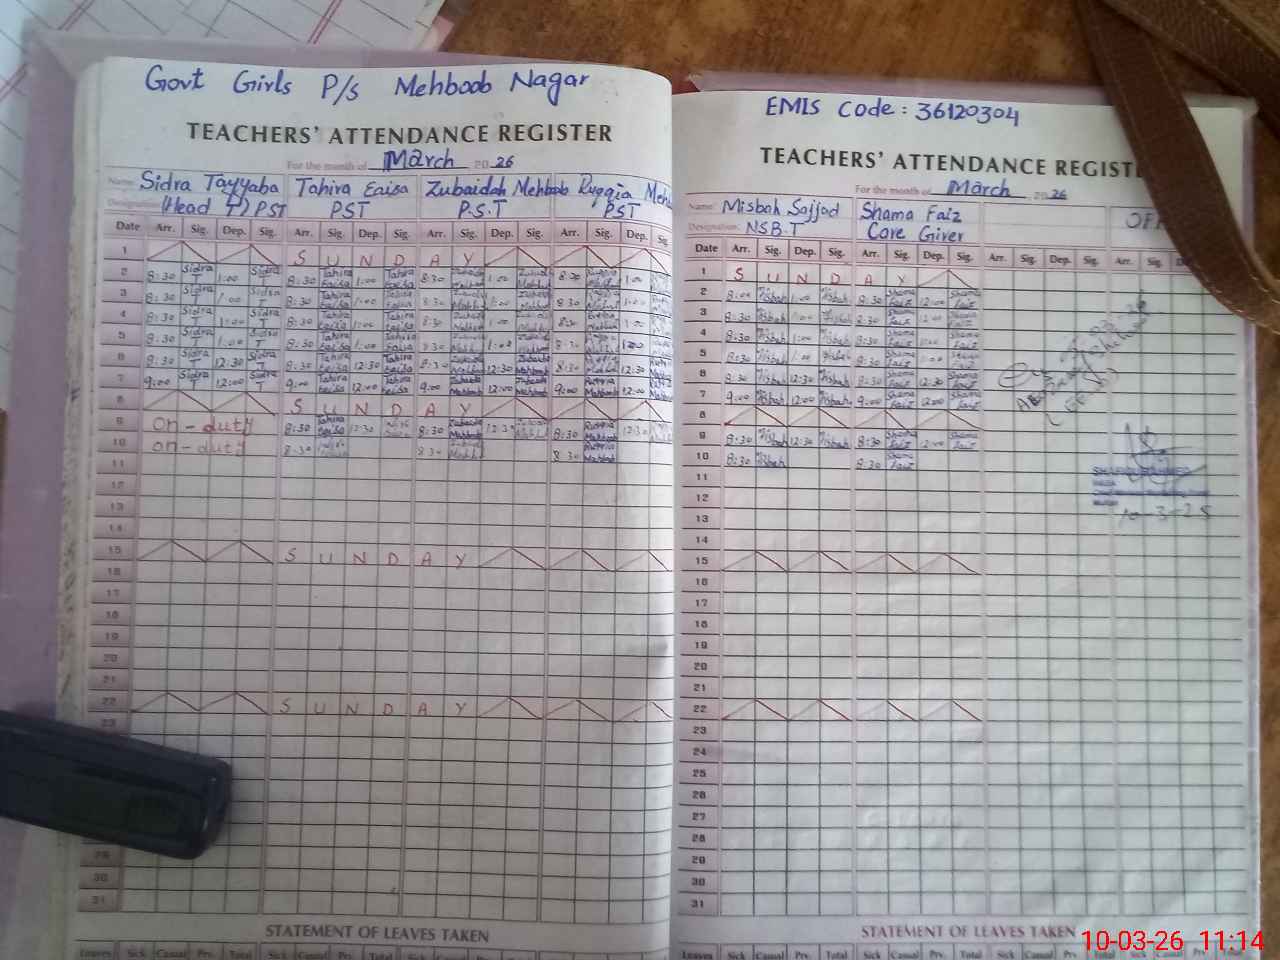 Govt Girls P/s Mehboob Nagar
TEACHERS' ATTENDANCE REGISTER
For the month of March 20 26
Name: Sidra Tayyaba Tahira Eaisa Zubaidah Mehboob Ruqqia
Designation: (Head T) PST PST P.S.T PST
Date Arr. Sig. Dep. Sig. Arr. Sig. Dep. Sig. Arr. Sig. Dep. Sig. Arr. Sig. Dep.
1 S U N D A Y
2 8:30 Sidra T 1:00 Sidra T 8:30 Tahira Eaisa 1:00 Tahira Eaisa 8:30 1:00 8:30 1:00
3 8:30 Sidra T 1:00 Sidra T 8:30 Tahira Eaisa 1:00 8:30 1:00 8:30 1:00
4 8:30 Sidra T 1:00 Sidra T 8:30 Tahira Eaisa 1:00 Tahira Eaisa 8:30 1:00 8:30 1:00
5 8:30 Sidra T 1:00 Sidra T 8:30 Tahira Eaisa 1:00 Tahira Eaisa 8:30 1:00 8:30 1:00
6 8:30 Sidra T 12:30 Sidra T 8:30 Tahira Eaisa 12:30 Tahira Eaisa 8:30 12:30 Mehboob 8:30 12:30
7 9:00 Sidra T 12:00 Sidra T 9:00 Tahira Eaisa 12:00 Tahira Eaisa 9:00 Mehboob 12:00 Mehboob 9:00 12:00
8 S U N D A Y
9 on-duty 8:30 Tahira Eaisa 12:30 8:30 Mehboob 12:30 8:30 12:30
10 on-duty 8:30 8:30 8:30
11
12
13
14
15 S U N D A Y
16
17
18
19
20
21
22 S U N D A Y
23
29
30
31
STATEMENT OF LEAVES TAKEN
Leaves Sick Casual Prv. Total Sick Casual Prv. Total Sick Casual Prv. Total Sick Casual Prv.
EMIS Code: 36120304
TEACHERS' ATTENDANCE REGIST
For the month of March 20 26
Name: Misbah Sajjad Shama Faiz
Designation: NSB.T Care Giver
Date Arr. Sig. Dep. Sig. Arr. Sig. Dep. Sig. Arr. Sig. Dep. Sig. Arr. Sig.
1 S U N D A Y
2 8:00 Misbah 1:00 Misbah 8:30 Shama Faiz 12:00 Shama Faiz
3 8:30 Misbah 1:00 Misbah 8:30 Shama Faiz 12:00 Shama Faiz
4 8:30 Misbah 1:00 Misbah 8:30 Shama Faiz
5 8:30 Misbah 1:00 Misbah 8:30 Shama Faiz
6 8:30 Misbah 12:30 Misbah 8:30 Shama Faiz 12:30 Shama Faiz
7 9:00 Misbah 12:00 Misbah 9:00 Shama Faiz 12:00 Shama Faiz
8
9 8:30 Misbah 12:30 Misbah 8:30 Shama Faiz 12:00 Shama Faiz
10 8:30 Misbah 8:30 Shama Faiz
11
12
13
14
15
16
17
18
19
20
21
22
23
24
25
26
27
28
29
30
31
STATEMENT OF LEAVES TAKEN
Leaves Sick Casual Prv. Total Sick Casual Prv. Total Sick Casual Prv Total Sick Casual
10-03-26 11:14